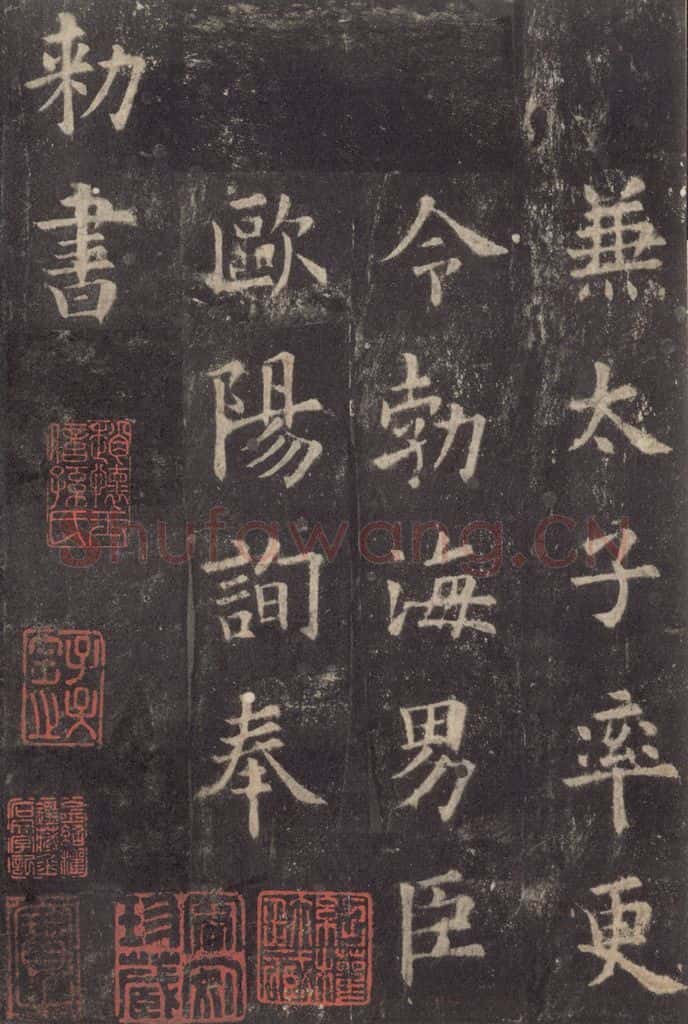 兼太子率更
令勃海男臣
歐陽詢奉
勑書
shufawang.CN